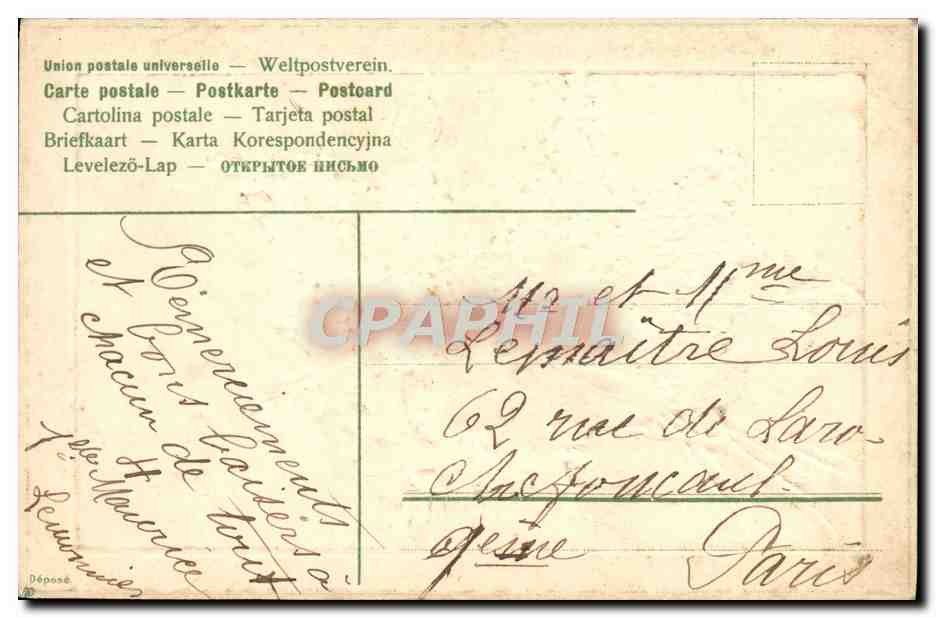 Union postale universelle — Weltpostverein.
Carte postale — Postkarte — Postcard
Cartolina postale — Tarjeta postal
Briefkaart — Karta Korespondencyjna
Levelező-Lap — ОТКРЫТОЕ ПИСЬМО
Remerciements
et bons baisers à
chacun de tout
Maurice
Lemonnier
Mr et Mme
Lemaître Louis
62 rue de Laro-
chefoucault
9ème Paris
CPAPHIL
Déposé